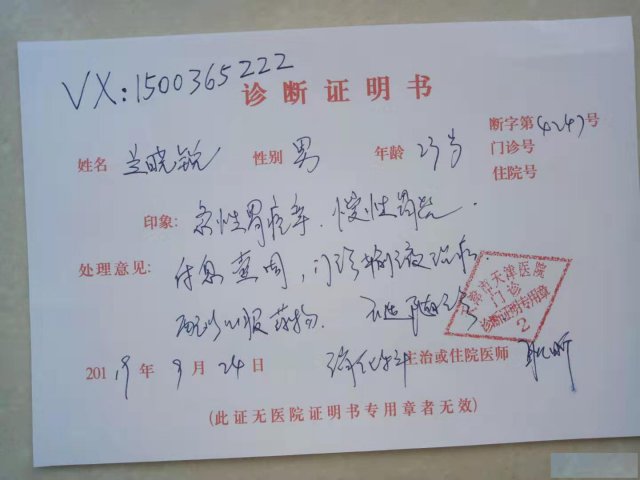 VX:1500365222
诊断证明书
断字第4247号
姓名 兰晓锐 性别 男 年龄 23岁 门诊号
住院号
印象: 急性胃痉挛. 慢性胃炎.
处理意见: 休息壹周, 门诊输液治疗
配以口服药物.
天津医院
门诊
诊断证明专用章
2
2019年9月24日 消化科 主治或住院医师
(此证无医院证明书专用章者无效)